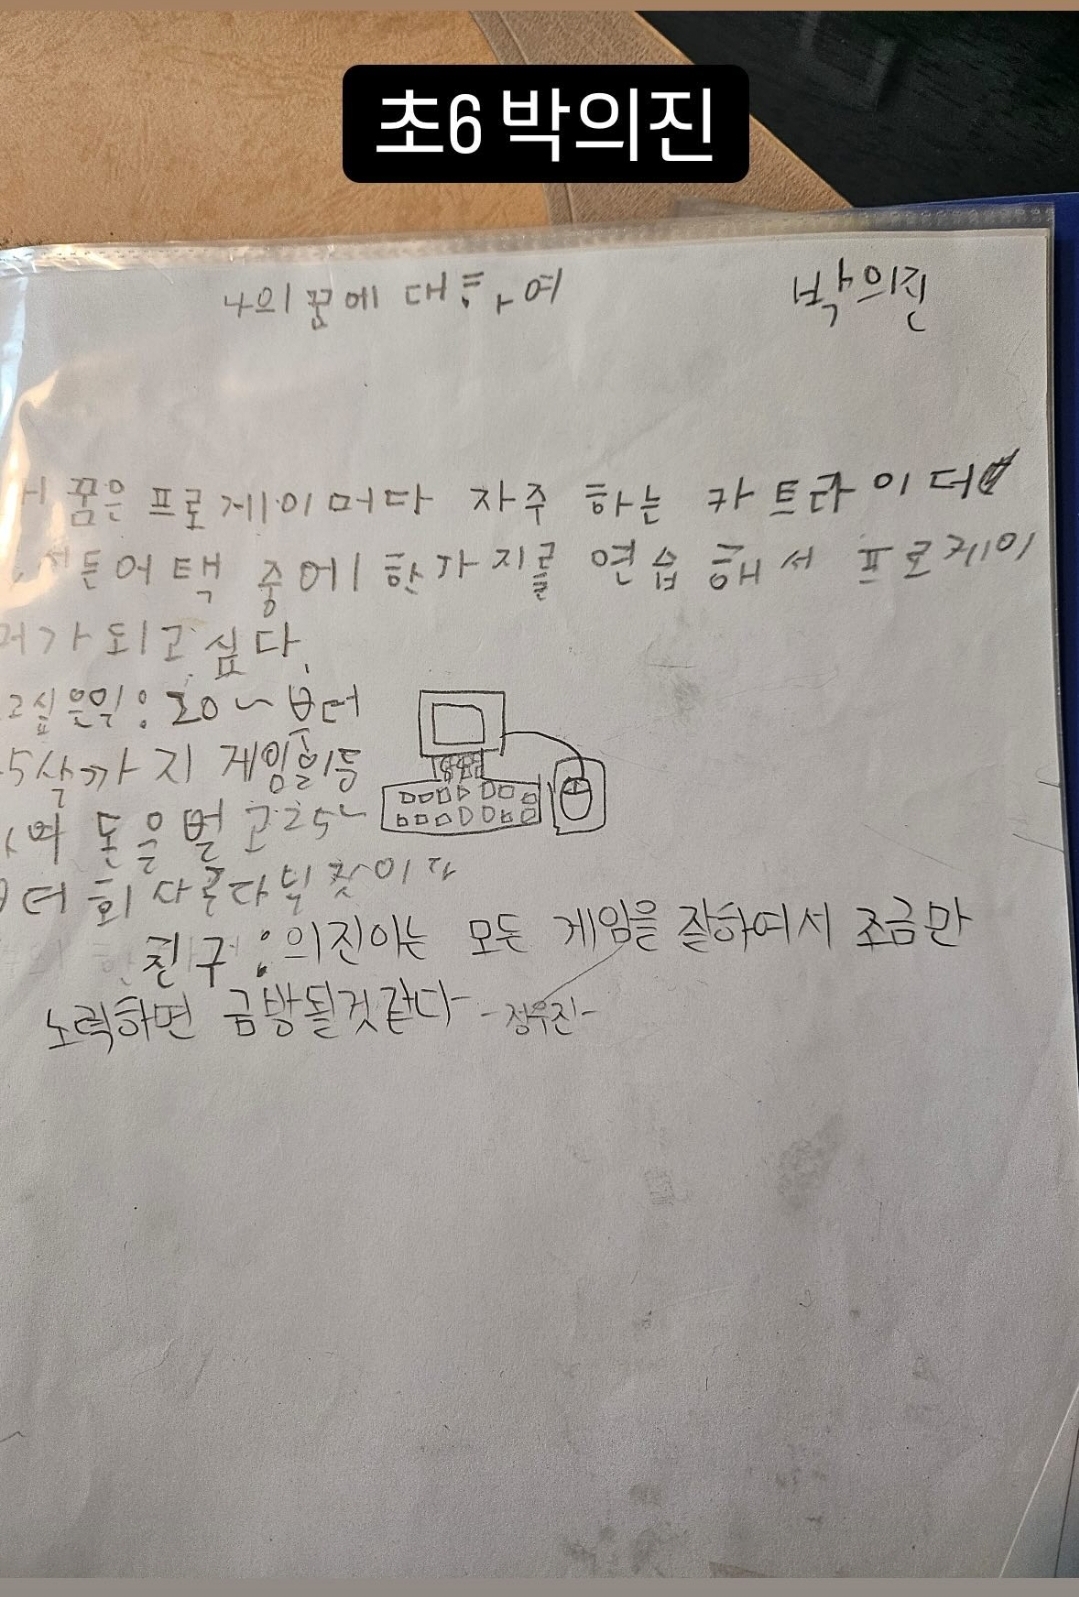 초6 박의진
나의 꿈에 대하여 박의진
꿈은 프로게이머다 자주 하는 카트라이더
서든어택 중에 한가지를 연습해서 프로게이
머가 되고 싶다.
고싶은일: 20~부터
5살까지 게임활동
돈을 벌고 25~
부터 회사를다닐것이다
친구: 의진이는 모든 게임을 잘하여서 조금만
노력하면 금방될것같다 -장우진-